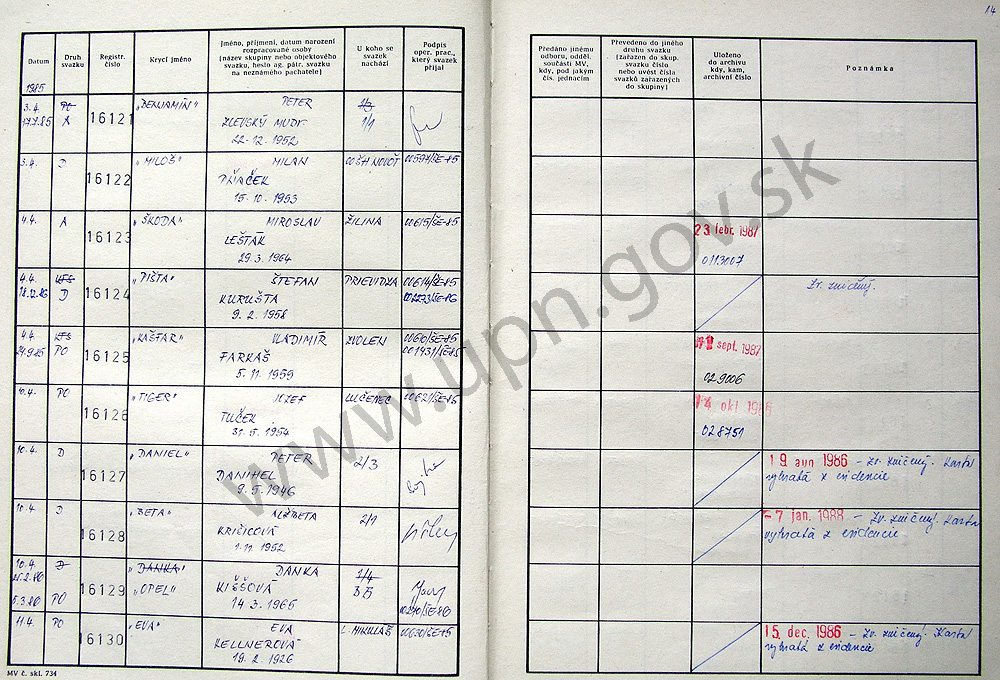 14
Datum
Druh svazku
Registr. číslo
Krycí jméno
Jméno, příjmení, datum narození
rozpracované osoby
(název skupiny nebo objektového
svazku, heslo ag. pátr. svazku
na neznámého pachatele)
U koho se
svazek
nachází
Podpis
oper. prac.,
který svazek
přijal
Předáno jinému
odboru, odděl.
součásti MV,
kdy, pod jakým
čís. jednacím
Převedeno do jiného
druhu svazku
(zařazen do skup.
svazku číslo
nebo uvést čísla
svazků zařazených
do skupiny)
Uloženo
do archivu
kdy, kam,
archivní číslo
Poznámka
1985
3.4. PO 16121 „BENJAMÍN" PETER 2/3
17.7.85 A ZLEVSKÝ MUDr 1/1
22.12.1952
3.4. D 16122 „MILOŠ" MILAN 00597/ŠE-85
15.10.1953
4.4. A 16123 „ŠKODA" MIROSLAV ŽILINA 00615/ŠE-85
LEŠTÁK
29.3.1964
23. febr. 1987
4.4. KFS 16124 „PIŠTA" ŠTEFAN PRIEVIDZA 00614/ŠE-85
D KURUŠTA
9.2.1958
Zv. zničený.
4.4. KFS 16125 „KAŠTAR" VLADIMÍR ZVOLEN 00610/ŠE-85
24.9.85 PO FARKAŠ 001431/ŠE-85
5.11.1959
sept. 1987
029006
10.4. PO 16126 „TIGER" JOZEF LUČENEC 00621/ŠE-85
TUČEK
31.5.1954
14 okt
028751
10.4. D 16127 „DANIEL" PETER 2/3
DANIHEL
9.5.1946
19. aug 1986 – Zv. zničený. Karta
vyňatá z evidencie
10.4. D 16128 „BETA" ALŽBETA 2/1
KRIŽICOVÁ
1.11.1952
– 7 jan. 1988 – Zv. zničený. Karta
vyňatá z evidencie
10.4. D 16129 „DANKA" DANKA 1/4
„OPEL" KIŠŠOVÁ
PO 14.3.1965
11.4. PO 16130 „EVA" EVA L. MIKULÁŠ 00630/ŠE-85
KELLNEROVÁ
19.2.1926
15. dec. 1986 – Zv. zničený. Karta
vyňatá z evidencie
MV č. skl. 734
www.upn.gov.sk